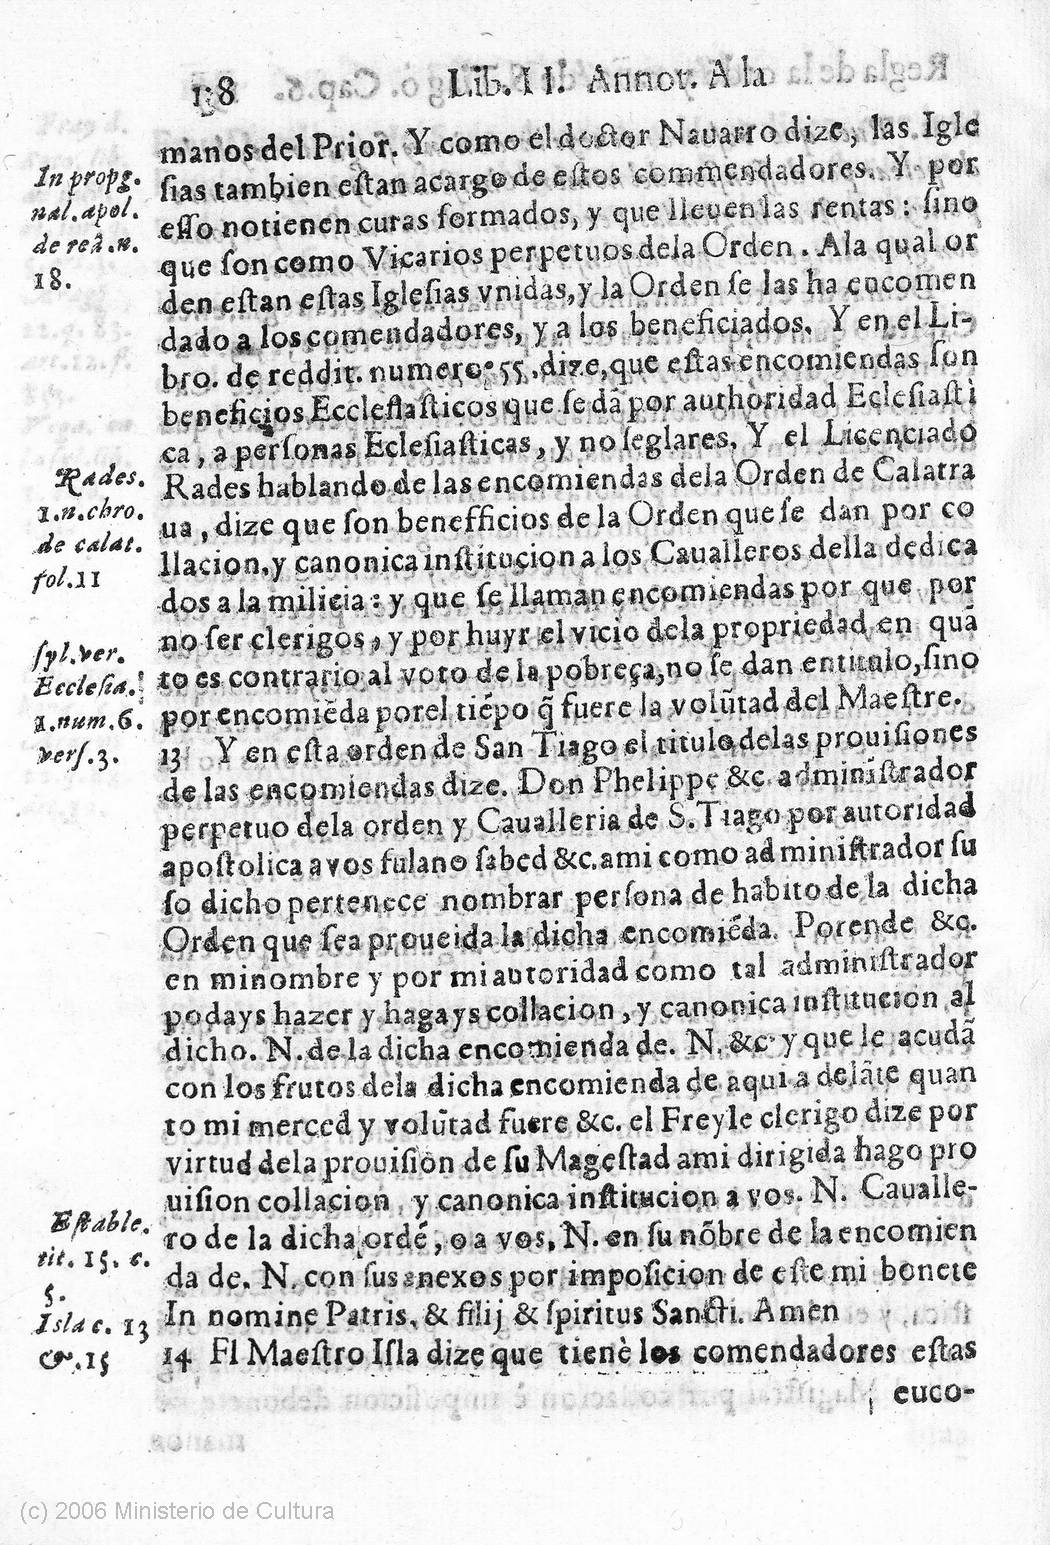 138 Lib. II. Annot. A la
manos del Prior. Y como el doctor Nauarro dize, las Igle
ſias tambien eſtan acargo de eſtos commendadores. Y por
eſſo notienen curas formados, y que lleuen las rentas: ſino
que ſon como Vicarios perpetuos dela Orden. Ala qual or
den eſtan eſtas Igleſias vnidas, y la Orden ſe las ha encomen
dado a los comendadores, y a los beneficiados. Y en el Li-
bro. de reddit. numero 55. dize, que eſtas encomiendas ſon
beneficios Eccleſiaſticos que ſe dã por authoridad Ecleſiaſti
ca, a perſonas Ecleſiaſticas, y no ſeglares. Y el Licenciado
Rades hablando de las encomiendas dela Orden de Calatra
ua, dize que ſon benefficios de la Orden que ſe dan por co
llacion, y canonica inſtitucion a los Caualleros della dedica
dos a la milicia: y que ſe llaman encomiendas por que por
no ſer clerigos, y por huyr el vicio dela propriedad en quã
to es contrario al voto de la pobreça, no ſe dan entitulo, ſino
por encomiẽda porel tiẽpo q̃ fuere la volũtad del Maeſtre.
13 Y en eſta orden de San Tiago el titulo delas prouiſiones
de las encomiendas dize. Don Phelippe &c. adminiſtrador
perpetuo dela orden y Caualleria de S. Tiago por autoridad
apoſtolica a vos fulano ſabed &c. ami como adminiſtrador ſu
ſo dicho pertenece nombrar perſona de habito de la dicha
Orden que ſea proueida la dicha encomiẽda. Porende &c.
en minombre y por mi autoridad como tal adminiſtrador
podays hazer y hagays collacion, y canonica inſtitucion al
dicho. N. de la dicha encomienda de. N. &c. y que le acudã
con los frutos dela dicha encomienda de aqui a delãte quan
to mi merced y volũtad fuere &c. el Freyle clerigo dize por
virtud dela prouiſion de ſu Mageſtad ami dirigida hago pro
uiſion collacion y canonica inſtitucion a vos. N. Caualle-
ro de la dicha ordẽ, o a vos, N. en ſu nõbre de la encomien
da de. N. con ſus anexos por impoſicion de eſte mi bonete
In nomine Patris, & filij & ſpiritus Sancti. Amen
14 El Maeſtro Iſla dize que tienẽ los comendadores eſtas
euco-
In propg.
nal. apol.
de red. n.
18.
Rades.
1. n. chro.
de calat.
fol. 11
ſyl. ver.
Eccleſia.
1. num. 6.
verſ. 3.
Eſtable.
tit. 15. c.
5.
Iſla c. 13
&. 15
(c) 2006 Ministerio de Cultura